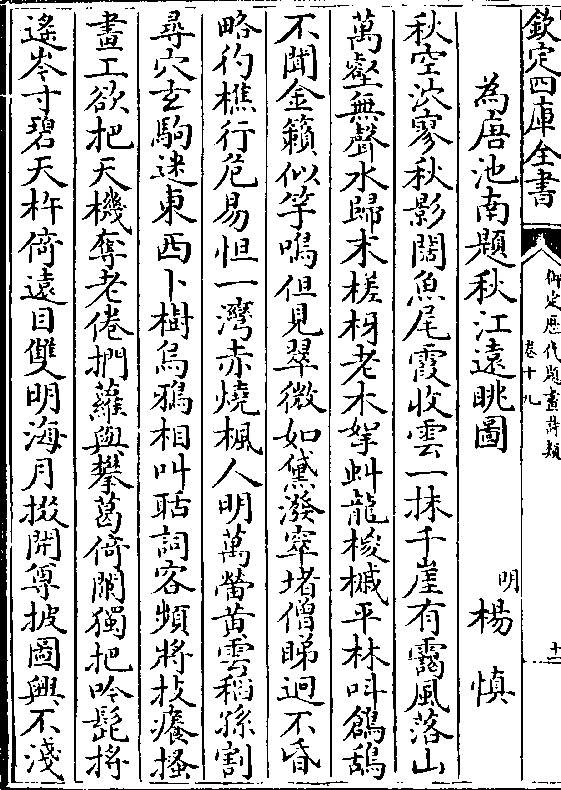 欽定四庫全書
御定歷代題畫詩類
卷十九
十二
為唐池南題秋江遠眺圖
明 楊慎
秋空泬寥秋影闊魚尾霞收雲一抹千崖有靄風落山
萬壑無聲水歸末槎枒老木拏虬龍梭槭平林叫鶬鴰
不聞金籟似竽鳴但見翠微如黛潑窣堵僧睇迥不昏
略彴樵行危易怛一灣赤燒楓人明萬罃黃雲稻孫割
尋穴玄駒迷東西卜樹烏鴉相叫聒詞客頻將技癢搔
畫工欲把天機奪老倦捫蘿與攀葛倚闌獨把吟髭捋
遙岑寸碧天杵倚遠目雙明海月掇開尊披圖興不淺